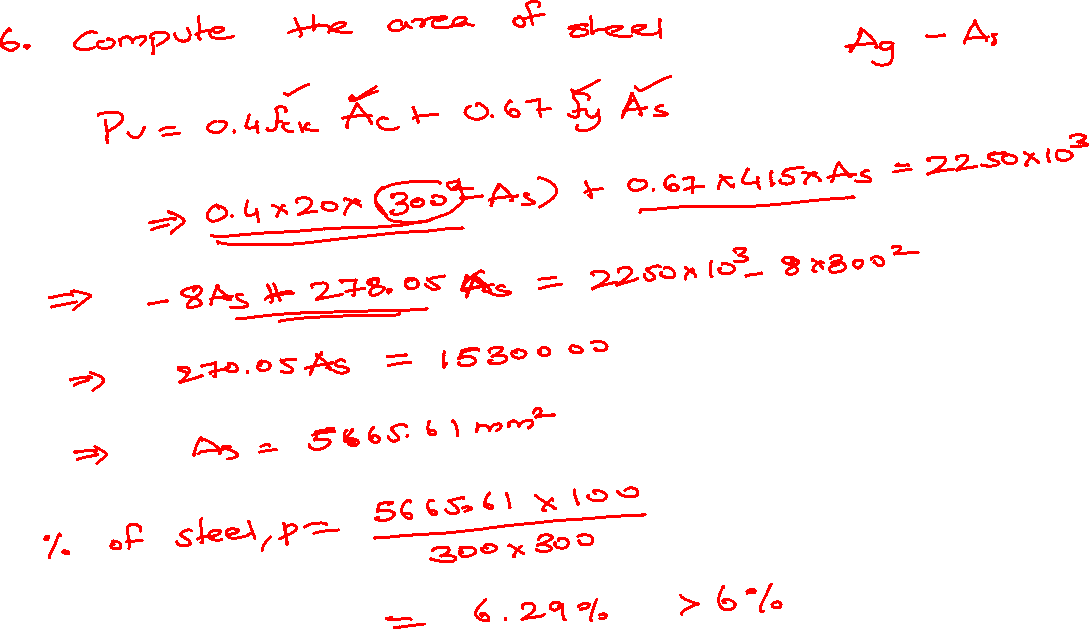 6. Compute the area of steel Ag - As
Pu = 0.4 fck Ac + 0.67 fy As
⇒ 0.4 x 20 x (300² - As) + 0.67 x 415 x As = 2250 x 10³
⇒ - 8As + 278.05 As = 2250 x 10³ - 8 x 300²
⇒ 270.05 As = 1530000
⇒ As = 5665.61 mm²
% of steel, p = 5665.61 x 100
300 x 300
= 6.29% > 6%